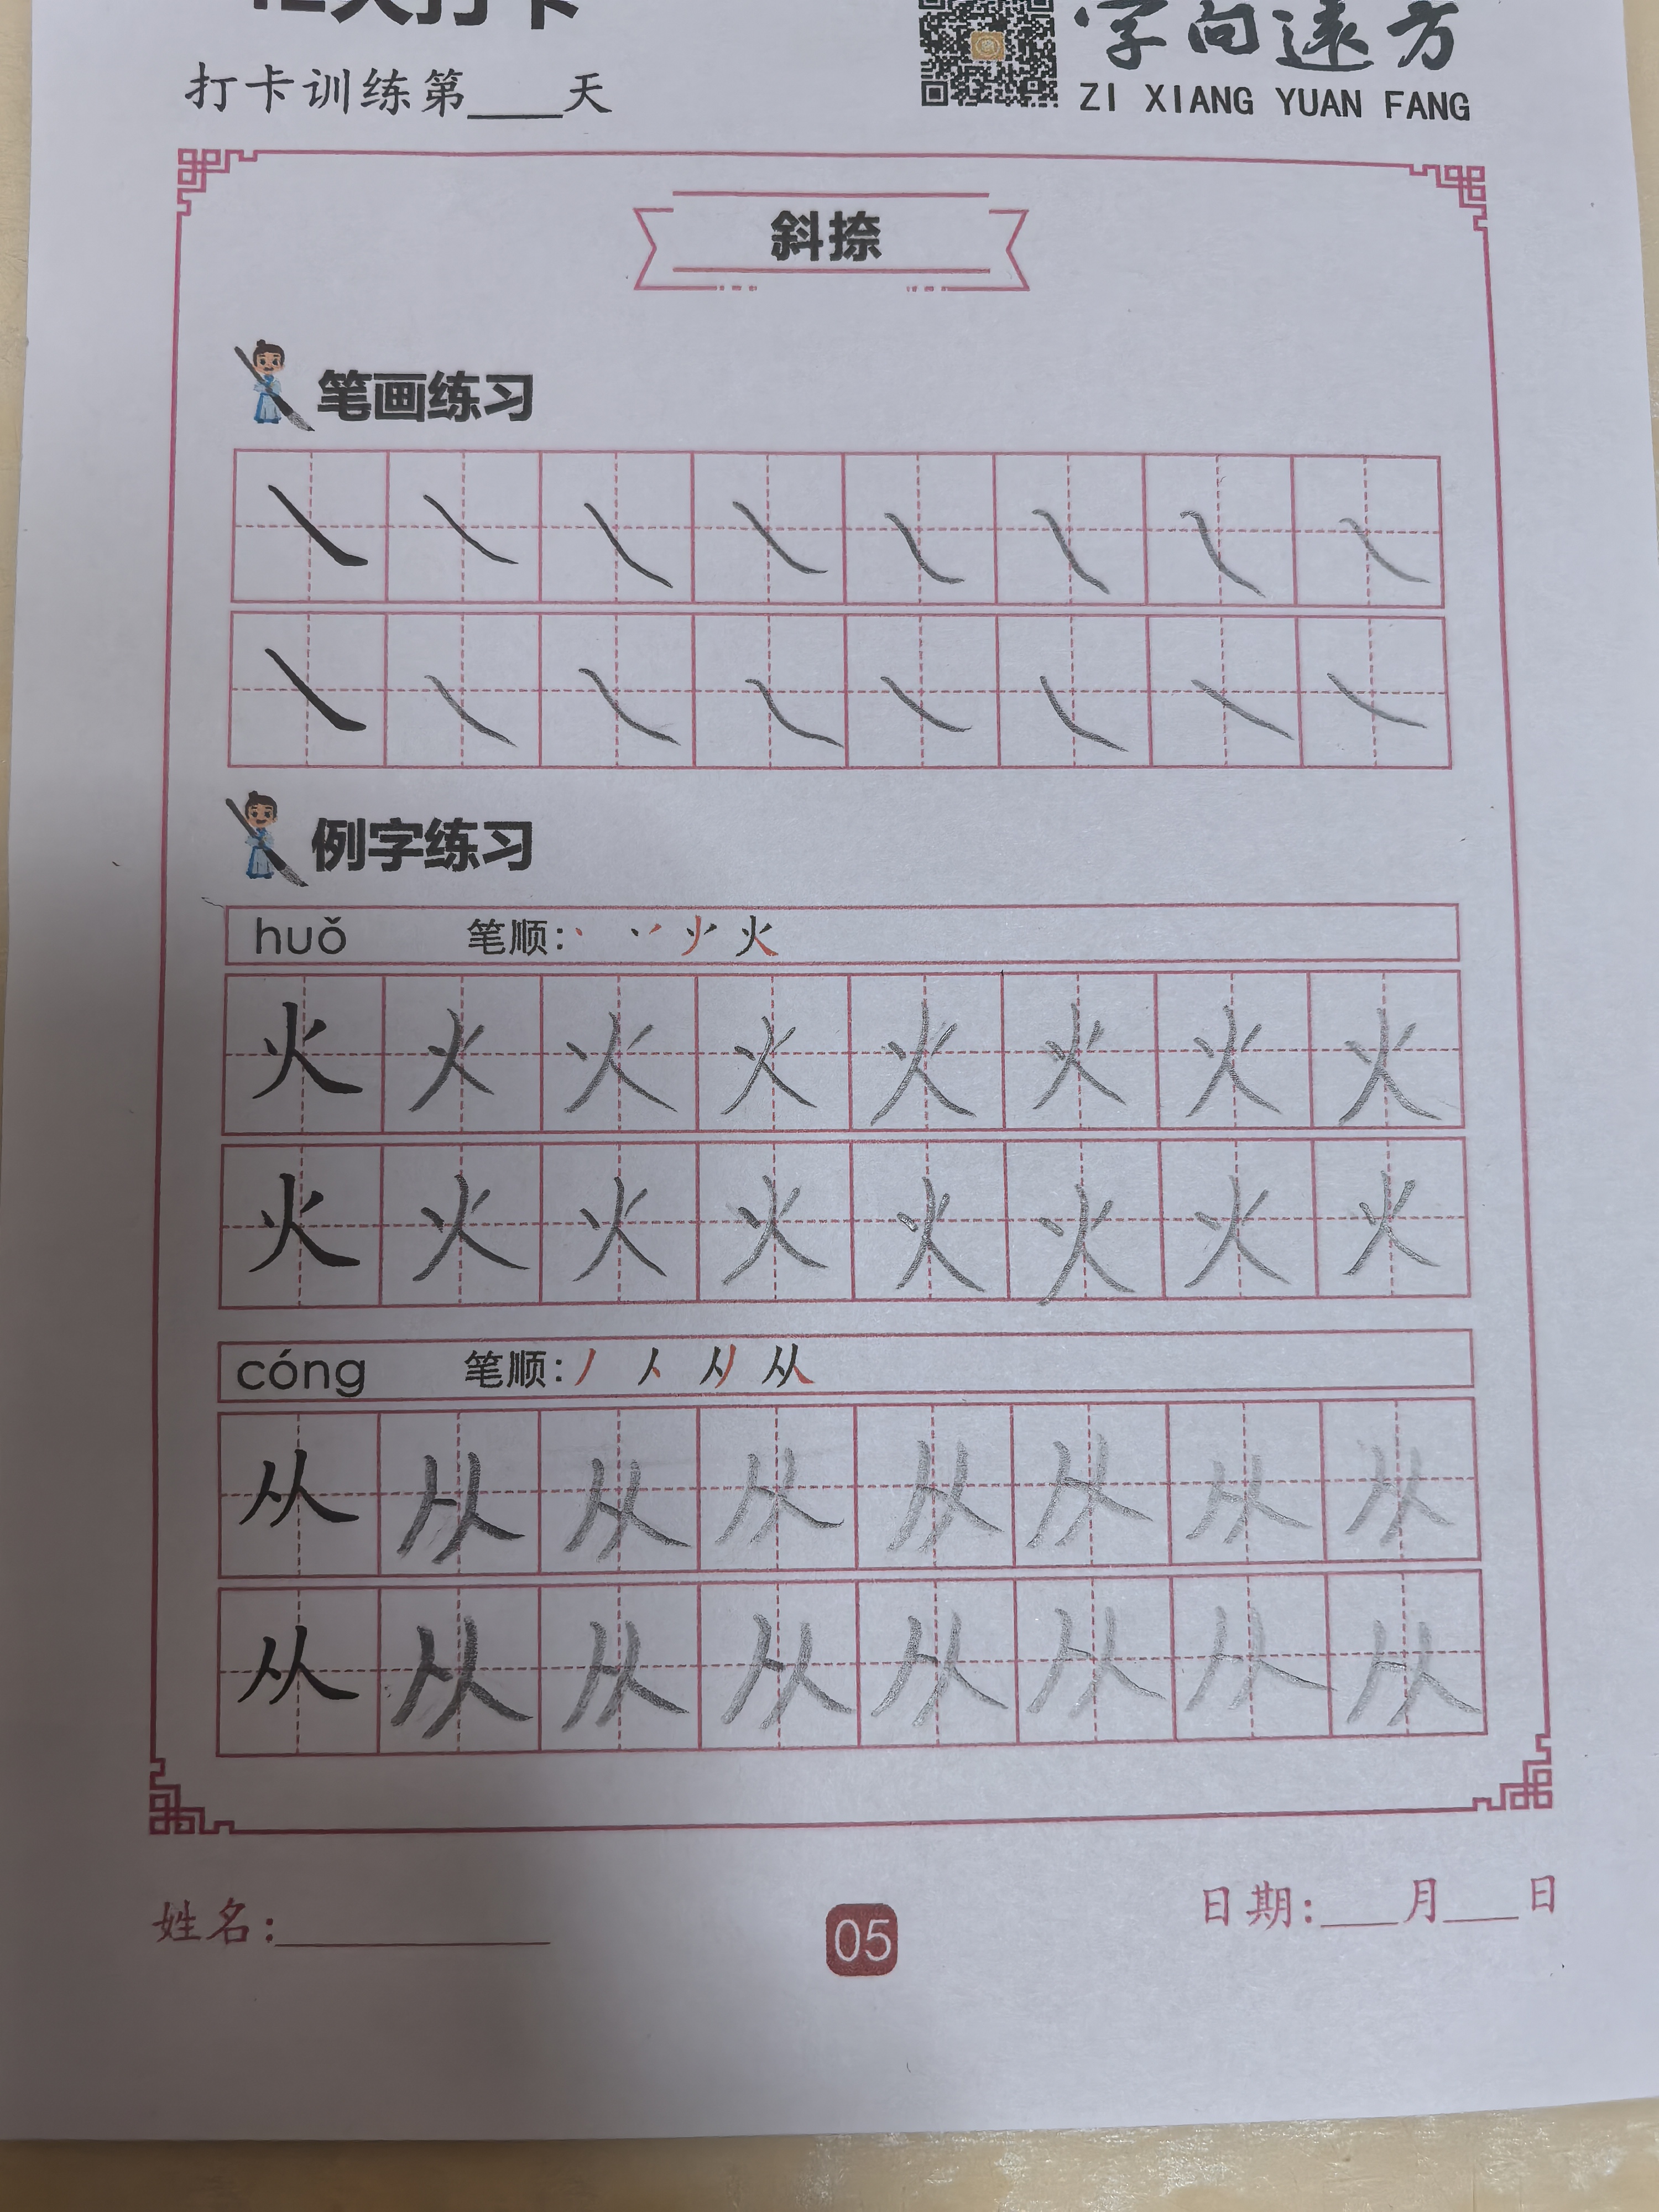 天打卡
字向远方
打卡训练第____天
ZI XIANG YUAN FANG
斜捺
笔画练习
㇏ ㇏ ㇏ ㇏ ㇏ ㇏ ㇏ ㇏
㇏ ㇏ ㇏ ㇏ ㇏ ㇏ ㇏ ㇏
例字练习
huǒ 笔顺: 火
火 火 火 火 火 火 火 火
火 火 火 火 火 火 火 火
cóng 笔顺: 丿 人 从
从 从 从 从 从 从 从 从
从 从 从 从 从 从 从 从
姓名:____________
05
日期:___月___日